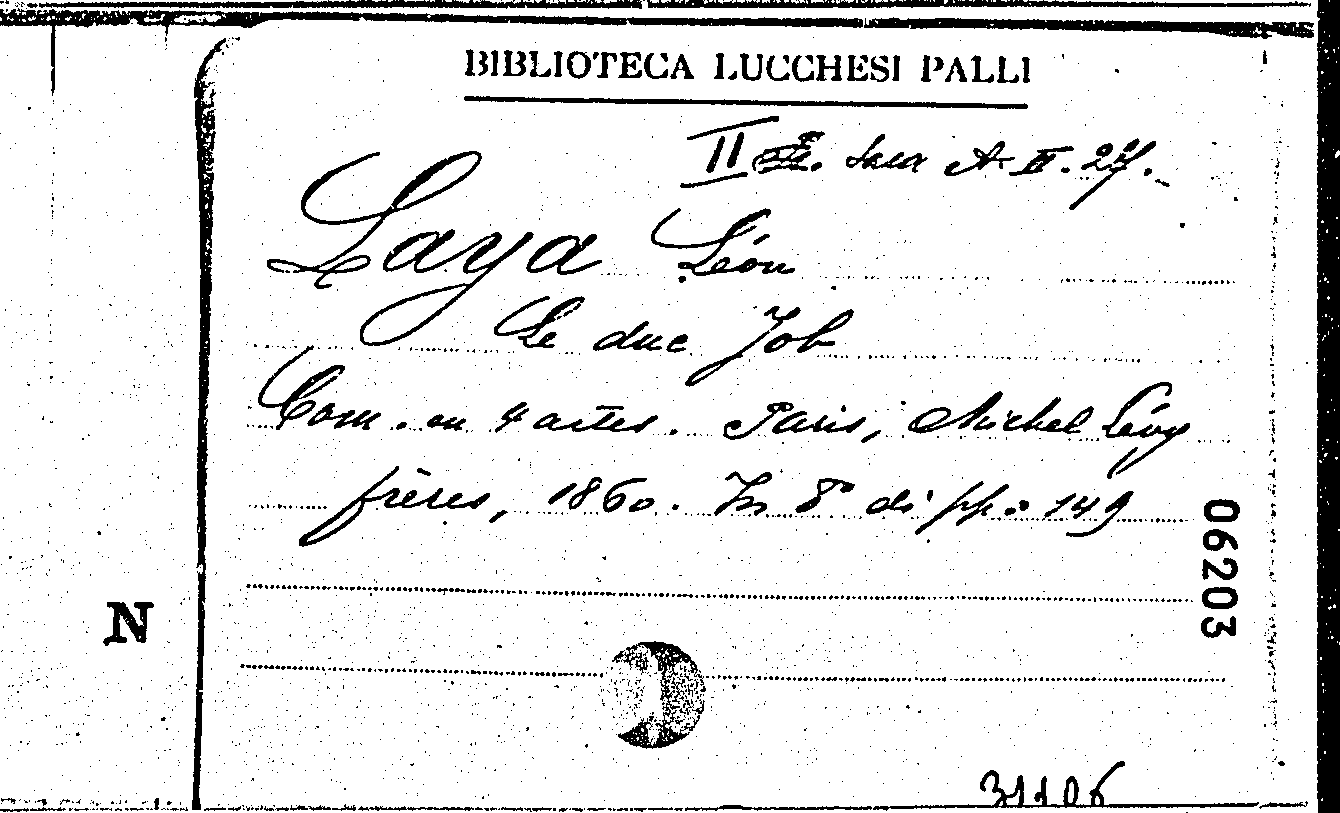 BIBLIOTECA LUCCHESI PALLI
II Sala A. II. 27.
Laya Léon
Le duc Job
Com. en 4 actes. Paris, Michel Lévy
frères, 1860. In 8° di pp. 149
06203
N
31106